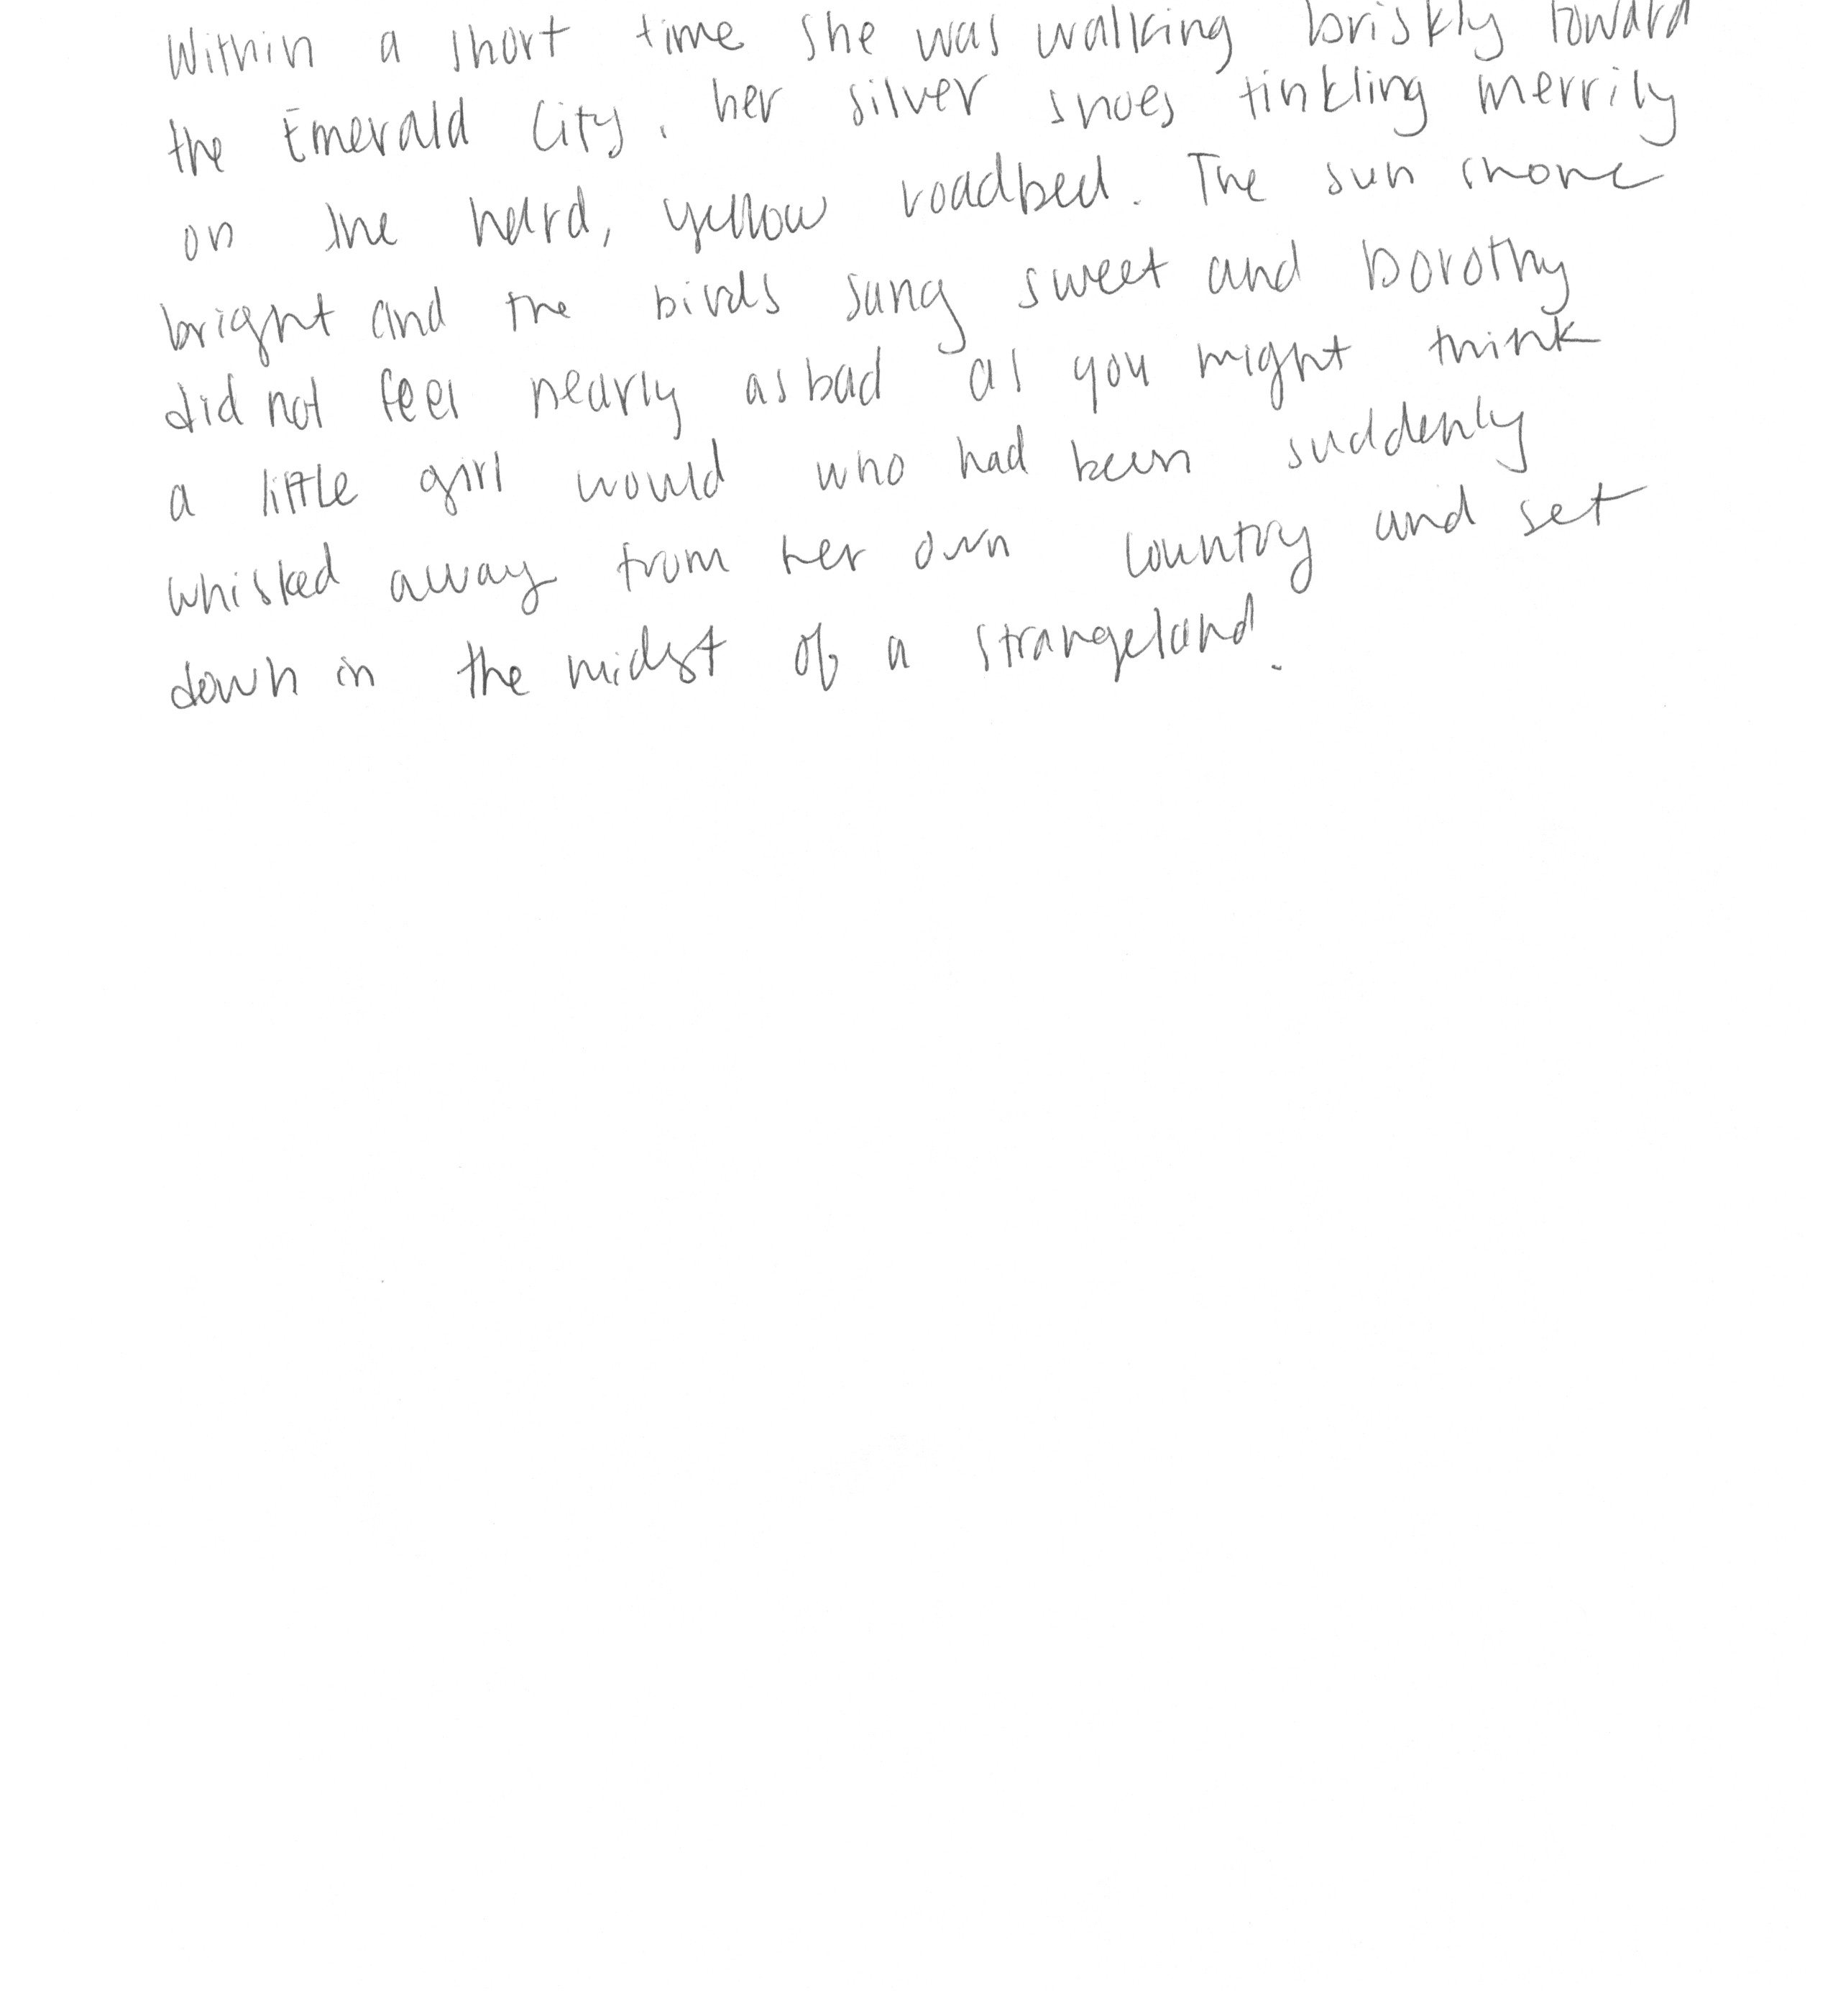 Within a short time she was walking briskly toward
the Emerald City, her silver shoes tinkling merrily
on the hard, yellow roadbed. The sun shone
bright and the birds sang sweet and Dorothy
did not feel nearly as bad as you might think
a little girl would who had been suddenly
whisked away from her own country and set
down in the midst of a strangeland.